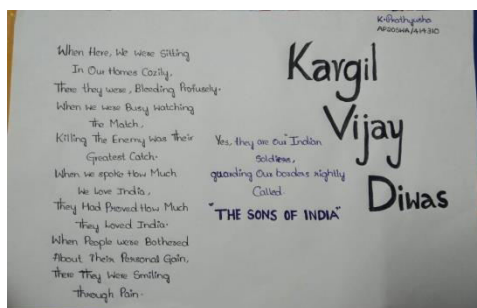 K. Prathyusha
When Here, We were Sitting
In Our Homes Cozily,
There they were, Bleeding Profusely.
When we were Busy Watching
the Match,
Killing The Enemy was Their
Greatest Catch.
When we spoke How Much
We Love India,
They Had Proved How Much
They Loved India.
When People were Bothered
About Their Personal Gain,
There They Were Smiling
Through Pain.
Yes, they are our Indian
Soldiers,
guarding Our borders nightly
Called
"THE SONS OF INDIA"
Kargil
Vijay
Diwas